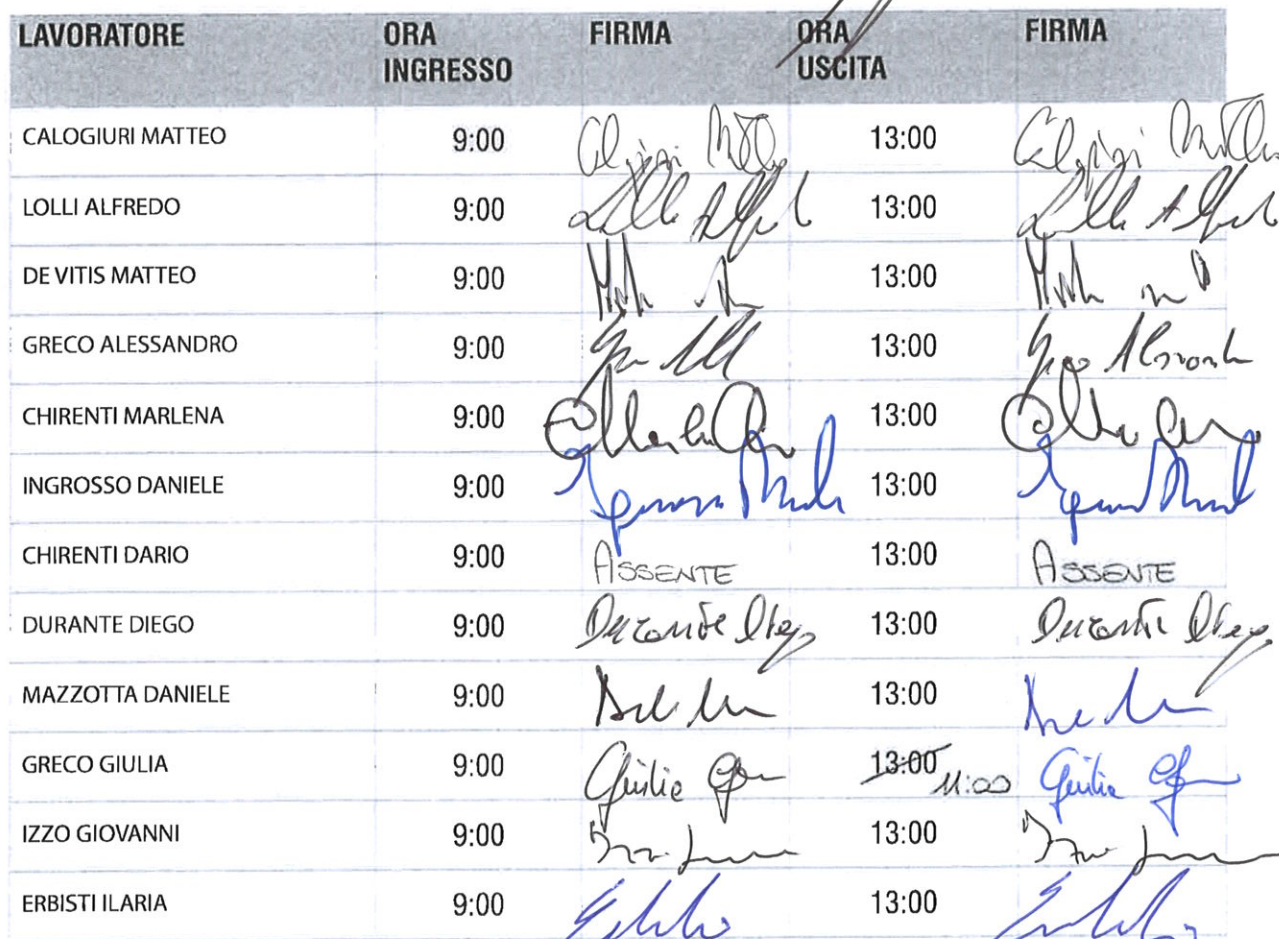 LAVORATORE ORA INGRESSO FIRMA ORA USCITA FIRMA
CALOGIURI MATTEO 9:00 13:00
LOLLI ALFREDO 9:00 Lolli Alfredo 13:00 Lolli Alfredo
DE VITIS MATTEO 9:00 13:00
GRECO ALESSANDRO 9:00 13:00 Greco Alessandro
CHIRENTI MARLENA 9:00 13:00
INGROSSO DANIELE 9:00 13:00
CHIRENTI DARIO 9:00 ASSENTE 13:00 ASSENTE
DURANTE DIEGO 9:00 Durante Diego 13:00 Durante Diego
MAZZOTTA DANIELE 9:00 13:00
GRECO GIULIA 9:00 Giulia 13:00 11:00 Giulia
IZZO GIOVANNI 9:00 13:00
ERBISTI ILARIA 9:00 13:00